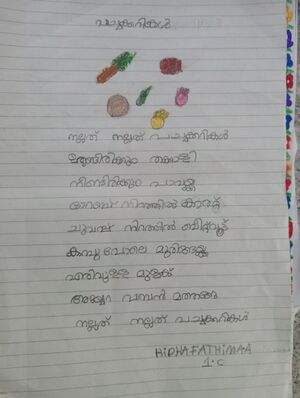 പച്ചക്കറികൾ
നല്ലത് നല്ലത് പച്ചക്കറികൾ
ഉരുണ്ടിരിക്കും തക്കാളി
നീണ്ടിരിക്കും പാവയ്ക്ക
ഓറഞ്ച് നിറത്തിൽ കാരറ്റ്
ചുവപ്പ് നിറത്തിൽ ബീറ്റ്റൂട്ട്
കമ്പു പോലെ മുരിങ്ങയ്ക്ക
എരിവുള്ള മുളക്
അയ്യോ വമ്പൻ മത്തങ്ങ
നല്ലത് നല്ലത് പച്ചക്കറികൾ
HIDHA FATHIMA.A
1.C